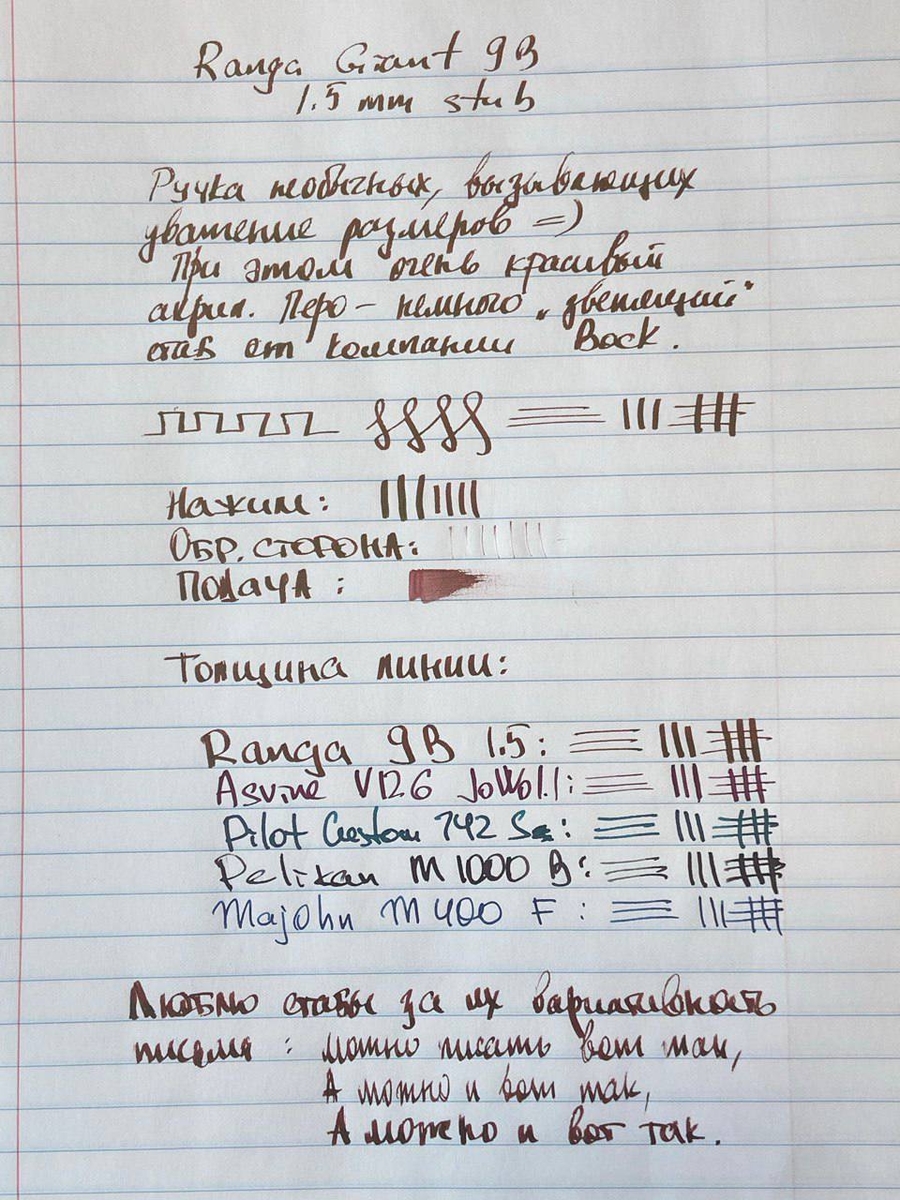 Ranga Giant 9B
1.5 mm stub
Ручка необычных, вызывающих
уважение размеров =)
При этом очень красивый
акрил. Перо - немного „звенящий“
стаб от компании Bock.
Нажим:
ОБР. СТОРОНА:
ПОДАЧА :
Толщина линии:
Ranga 9B 1.5:
Asvine V126 JoWo 1.1:
Pilot Custom 742
Pelikan M1000 B:
Majohn M400 F :
Люблю стабы за их вариативность
письма : можно писать вот так,
А можно и вот так,
А можно и вот так.